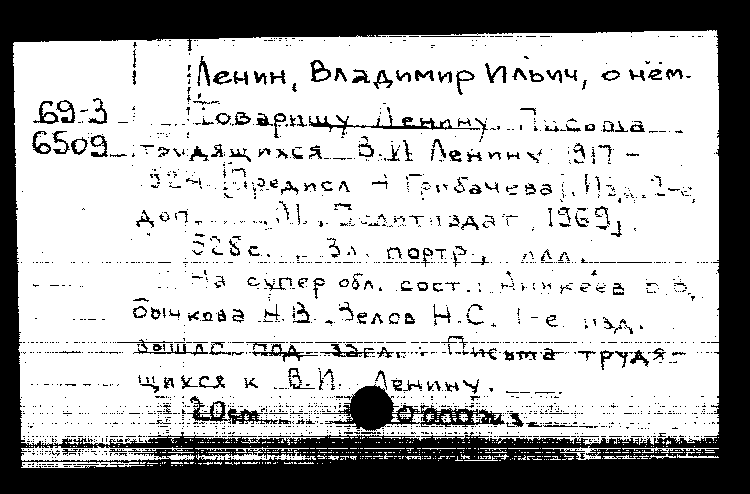 Ленин, Владимир Ильич, о нём.
69-3
6509
Товарищу Ленину. Письма
трудящихся В.И. Ленину. 1917-
924. [Предисл. Н. Грибачева]. Изд. 2-е,
доп. М., Политиздат, 1969.
528 с. 3л. портр., илл.
На супер обл. сост.: Аникеев В.В,
Бычкова Н.В. Зелов Н.С. 1-е изд.
вышло под загл.: Письма трудя-
щихся к В.И. Ленину.
20см